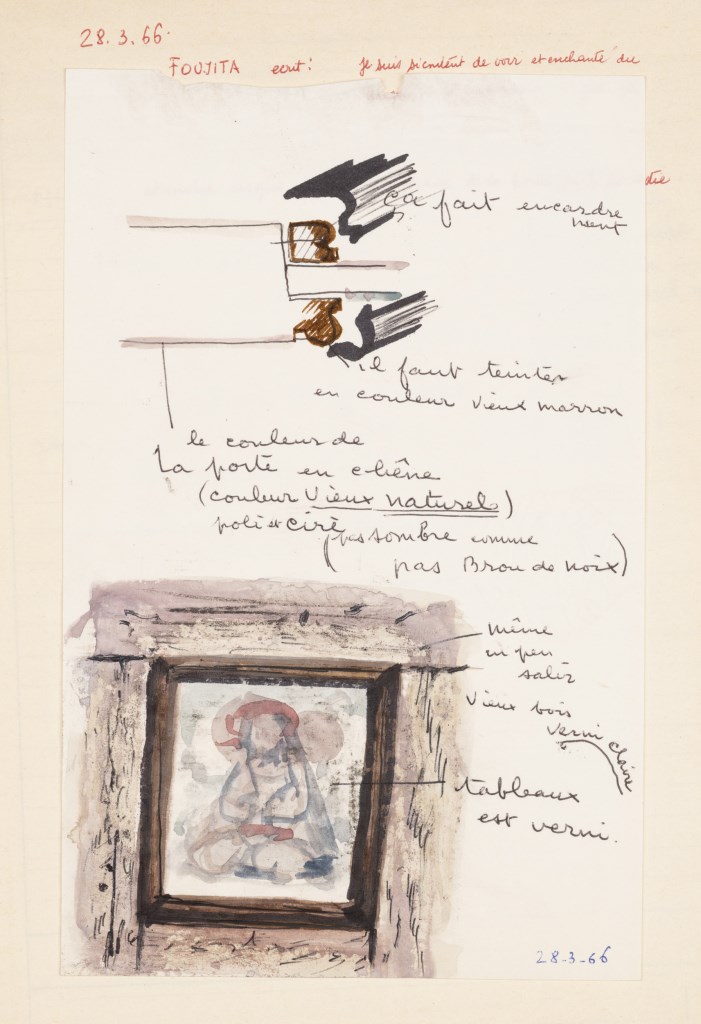 28.3.66.
FOUJITA ecrit: je suis si content de voir et enchanté du
ça fait encardre
ment
il faut teinter
en couleur vieux marron
le couleur de
La porte en chêne
(couleur Vieux naturel)
poli et ciré
(pas sombre comme
pas Brou de noix)
même
un peu
salir
vieux bois
verni claire
tableaux
est verni.
28-3-66